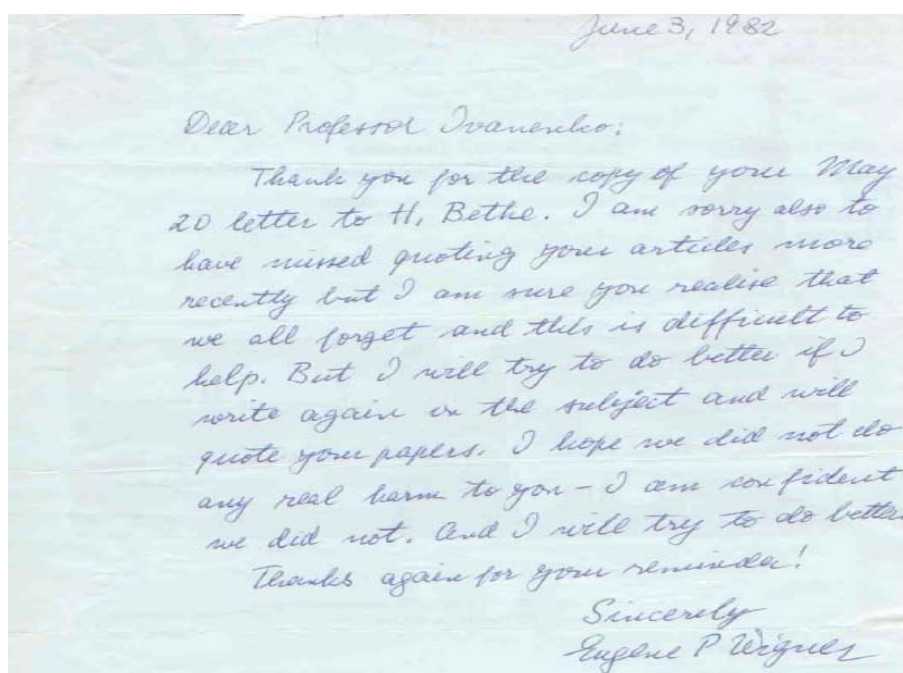 June 3, 1982
Dear Professor Ivanenko:
Thank you for the copy of your May
20 letter to H. Bethe. I am sorry also to
have missed quoting your articles more
recently but I am sure you realise that
we all forget and this is difficult to
help. But I will try to do better if I
write again on the subject and will
quote your papers. I hope we did not do
any real harm to you - I am confident
we did not. And I will try to do better.
Thanks again for your reminder!
Sincerely
Eugene P Wigner